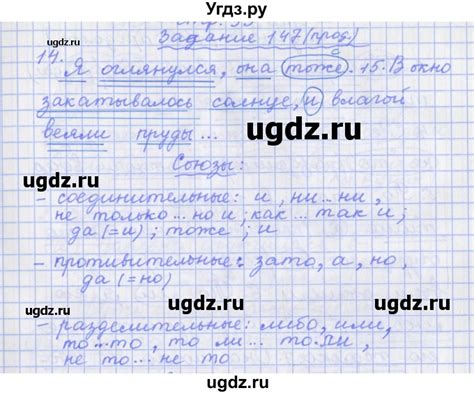 Угдз.ру
Задание 147(прод.)
14.
Я оглянулся, она тоже. 15. В окно
закатывалось солнце, и влагой
веяли пруды...
ugdz.ru
ugdz.ru
Союзы:
- соединительные: и, ни... ни,
не только... но и; как... так и;
да (=и); тоже; и
ugdz.ru
- противительные: зато, а, но,
да (=но)
ugdz.ru
ugdz.ru
- разделительные: либо, или,
то... то, то ли... то ли,
не то... не то
ugdz.ru
ugdz.ru